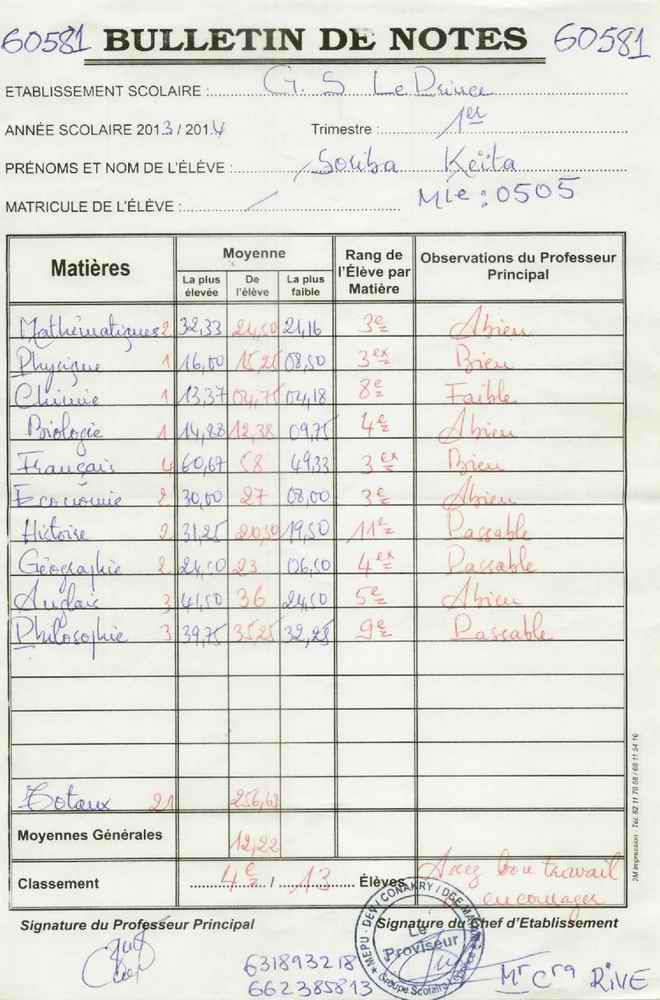 60581 BULLETIN DE NOTES 60581
ETABLISSEMENT SCOLAIRE : G. S Le Prince
ANNÉE SCOLAIRE 2013 / 2014 Trimestre : 1er
PRÉNOMS ET NOM DE L'ÉLÈVE : Soriba Keïta
MATRICULE DE L'ÉLÈVE : / Mle : 0505
Matières Moyenne Rang de l'Élève par Matière Observations du Professeur Principal
La plus élevée De l'élève La plus faible
Mathématiques 2 32,33 24,50 21,16 3e Abien
Physique 1 16,00 15,25 08,50 3ex Bien
Chimie 1 13,37 04,75 04,18 8e Faible
Biologie 1 14,88 12,38 09,75 4e Abien
Français 4 60,67 58 49,33 3ex Bien
Economie 2 30,00 27 08,00 3e Abien
Histoire 2 31,25 20,50 19,50 11e Passable
Géographie 2 24,50 23 06,50 4ex Passable
Anglais 3 41,50 36 24,50 5e Abien
Philosophie 3 39,75 35,25 32,25 9e Passable
Totaux 21 256,63
Moyennes Générales 12,22
Classement 4e / 13 Élèves Assez bon travail
encourager
Signature du Professeur Principal Signature du Chef d'Etablissement
Le Proviseur
631893218
662385813 Mr Cra RIVE